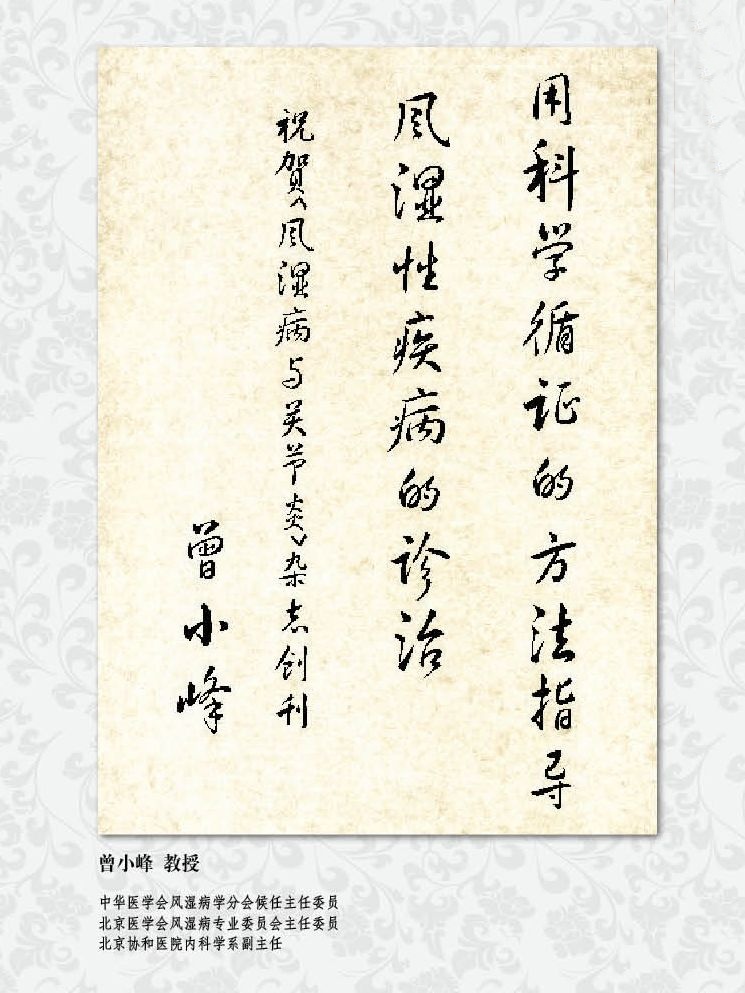 用科学循证的方法指导
风湿性疾病的诊治
祝贺《风湿病与关节炎》杂志创刊
曾小峰
曾小峰 教授
中华医学会风湿病学分会候任主任委员
北京医学会风湿病专业委员会主任委员
北京协和医院内科学系副主任